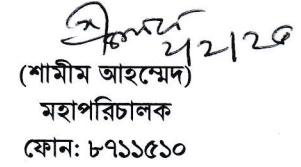 (শামীম আহম্মেদ)
মহাপরিচালক
ফোন: ৮৭১১৫১০